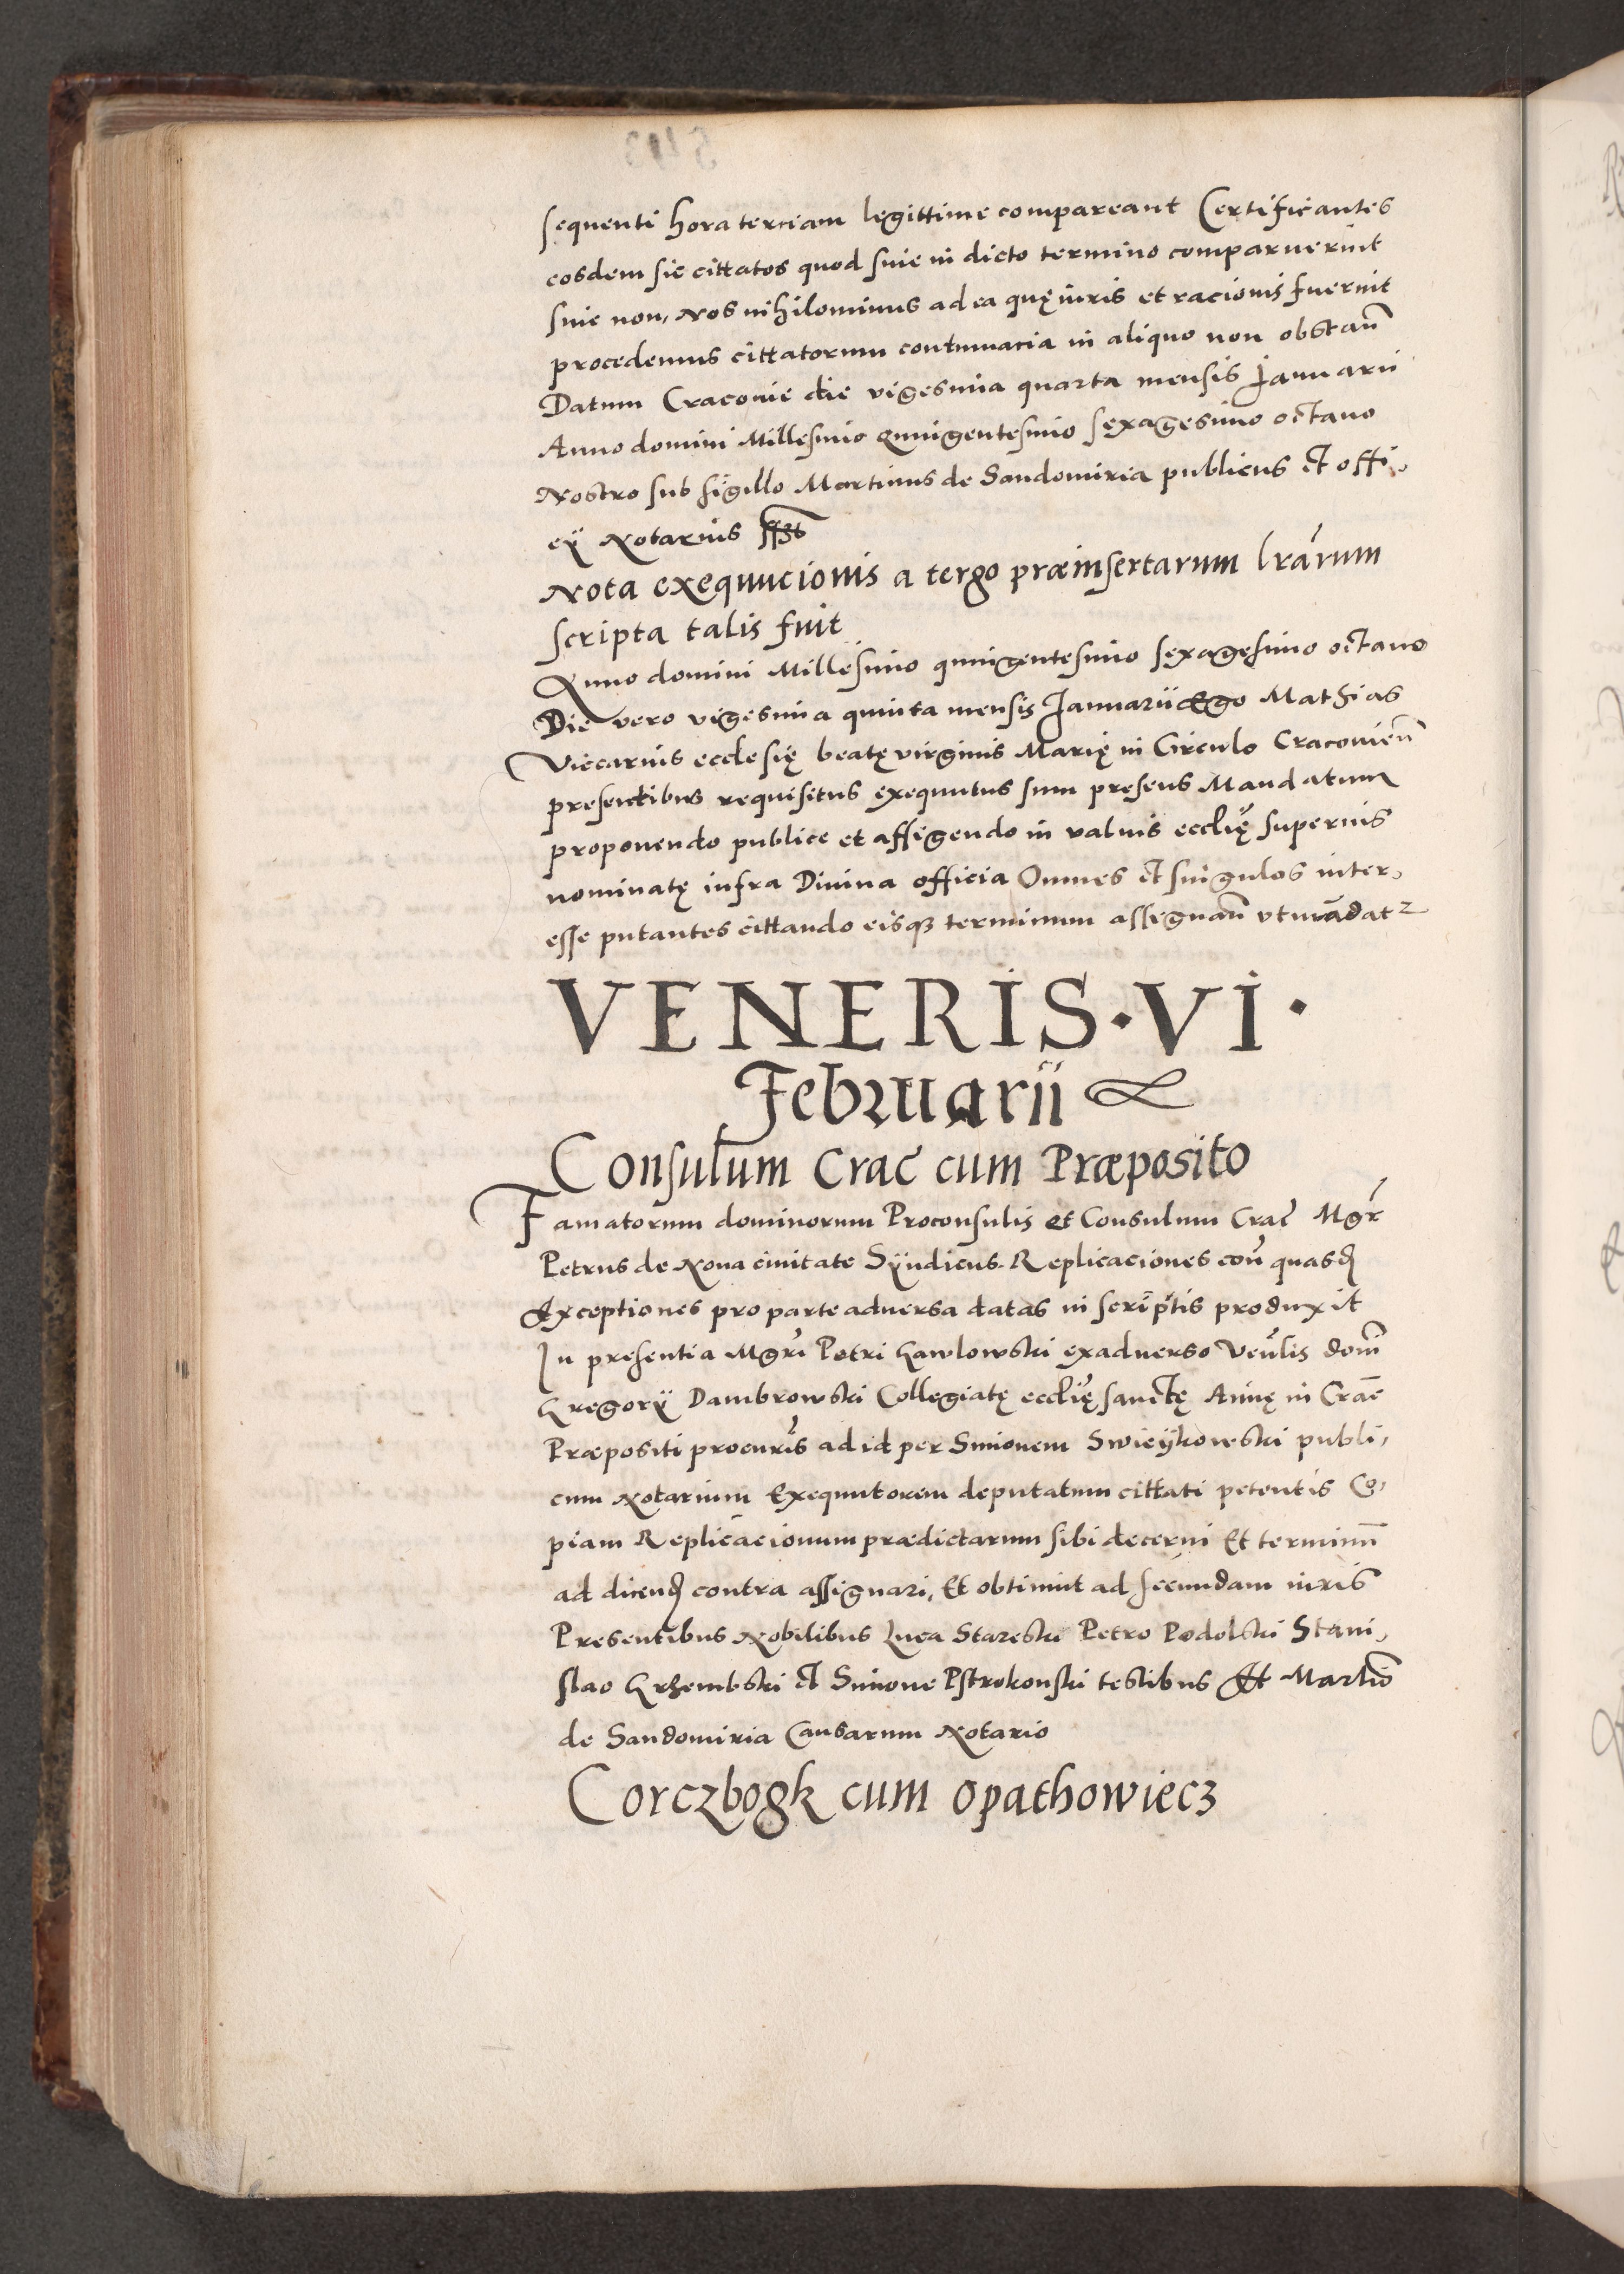 sequenti hora terciam legittime compareant Certificantes
eosdem sic cittatos quod sive in dicto termino comparuerint
sive non, Nos nihilominus ad ea quę iuris et racionis fuerint
procedemus cittatorum contumacia in aliquo non obstan̄
Datum Cracovie die vigesima quarta mensis Januarii
Anno domini Millesimo Quingentesimo sexagesimo octavo
Nostro sub sigillo Martinus de Sandomiria publicus et offi,
cÿ Notarius
Nota exequucionis a tergo præinsertarum lrārum
scripta talis fuit
Anno domini Millesimo quingentesimo sexagesimo octavo
Die vero vigesima quinta mensis Januarii Ego Mathias
Viccarius ecclesię beatę virginis Marię in Circulo Cracovien̄
presentibus requisitus exequutus sum presens Mandatum
proponendo publice et affigendo in valvis ecclię superius
nominatę infra Divina officia Omnes et singulos inter,
esse putantes cittando eisqꝫ terminum assignan̄ ut mādatᷣ
VENERIS · VI ·
Februarii
Consulum Crac̄ cum Præposito
Famatorum dominorum Proconsulis et Consulum Crac̄ Mgr̄
Petrus de Nova civitate Sÿndicus Replicaciones con̄ quasd̄
Exceptiones pro parte adversa datas in scrīptis produxit
In presentia Mgrī Petri Gawlowski ex adverso Ven̄lis dom̄
Gregorÿ Dambrowski Collegiatę ecclię sanctę Annę in Crac̄
Præpositi procurīs ad id per Simonem Swieÿkowski publi,
cum Notarium Exequutorem deputatum cittati petentis Co,
piam Replicacionum prædictarum sibi decerni Et terminū
ad dicend̄ contra assignari, Et obtinuit ad secundam iuris
Presentibus Nobilibus Luca Starski Petro Podolski Stani,
slao Grzembski et Simone Pstrokonski testibus Et Martinō
de Sandomiria Causarum Notario
Corczbogk cum Opathowiecz